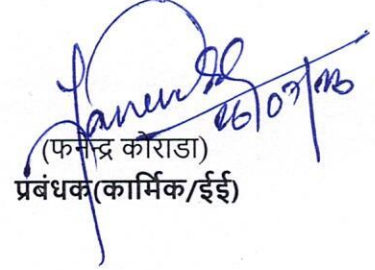 26/07/
(फनेन्द्र कौराडा)
प्रबंधक(कार्मिक/ईई)